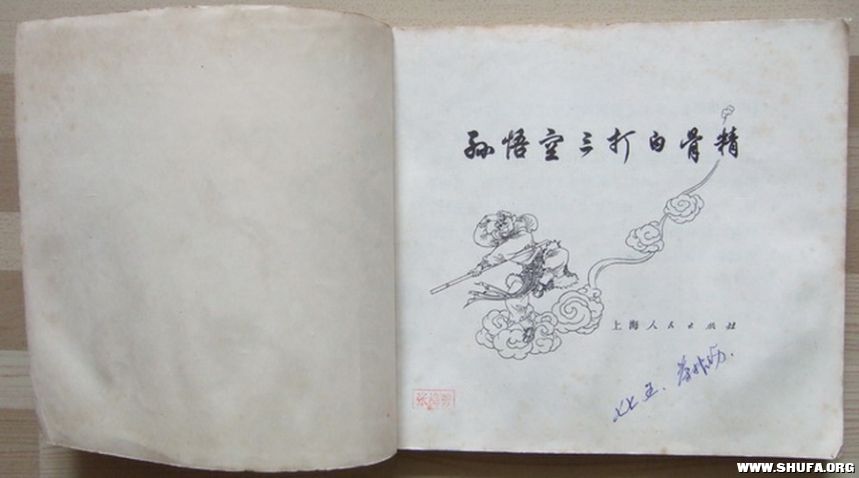 孙悟空三打白骨精
上海人民出版社
WWW.SHUFA.ORG